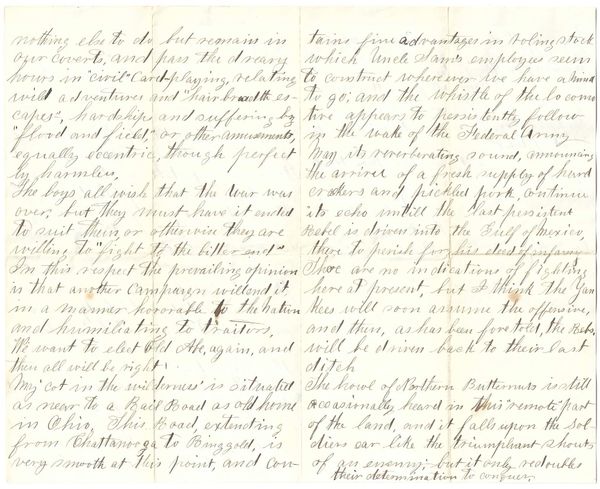 nothing else to do but remain in
our coverts, and pass the dreary
hours in "civil" Card playing, relating
wild adventures and "hairbreadth es-
capes", hardship and suffering by
"flood and field", or other amusements,
equally eccentric, though perfect
ly harmless.
The boys all wish that the war was
over, but they must have it ended
to suit them, or otherwise they are
willing to "fight to the bitter end"
In this respect the prevailing opinion
is that another Campaign will end it
in a manner honorable to the Nation
and humiliating to traitors.
We want to elect Old Abe, again, and
then all will be right.
My 'cot in the wilderness' is situated
as near to a Rail Road as old home
in Ohio, This Road, extending
from Chattanooga to Ringgold, is
very smooth at this point, and con-
tains fine advantages in roling stock
which Uncle Sam's employees seem
to construct wherever we have a mind
to go; and the whistle of the locomo
tive appears to persistently follow
in the wake of the Federal Army
May its reverberating sound, announcing
the arrival of a fresh supply of hard
crackers and pickled pork, continue
its echo untill the last persistent
Rebel is driven into the Gulf of Mexico,
there to perish for his deed of infamy
There are no indications of fighting
here at present, but I think the Yan
kees will soon assume the offensive,
and then, as has been foretold, the Rebs.
will be driven back to their last
ditch
The howl of Northern Butternuts is still
occasionally heard in this "remote" part
of the land, and it falls upon the Sol-
diers ear like the triumphant shouts
of an enemy; but it only redoubles
their determination to conquer.